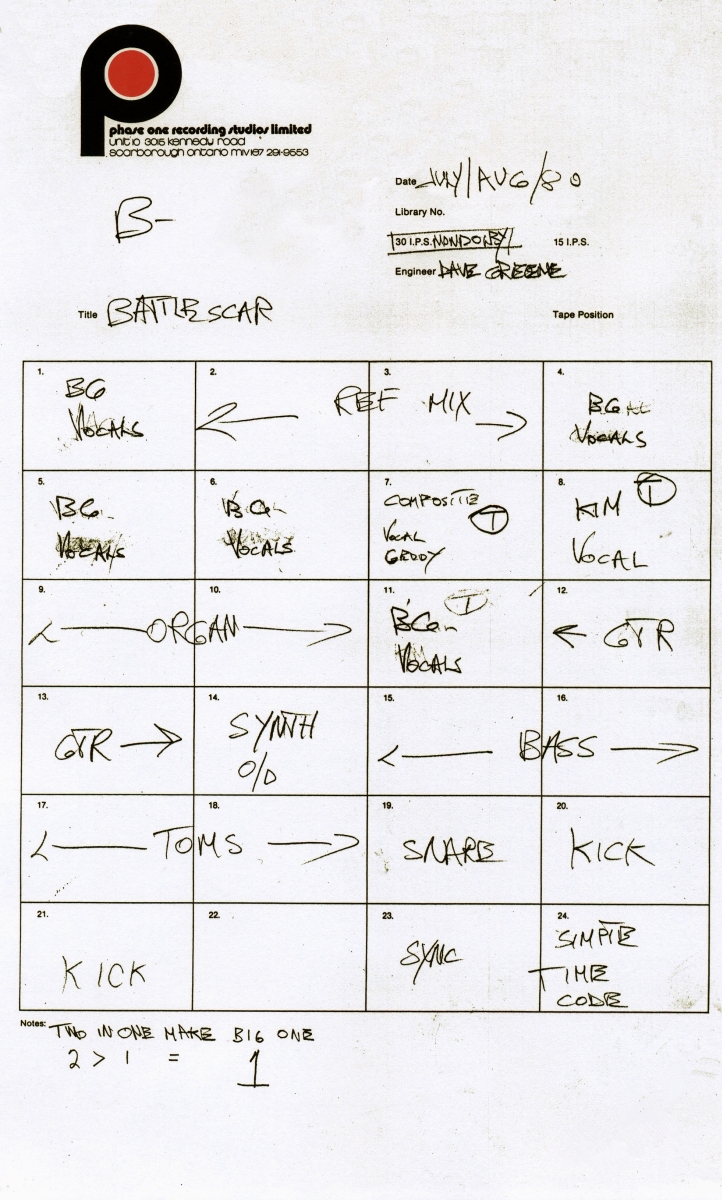 phase one recording studios limited
unit 10 3015 kennedy road
scarborough ontario m1v1e7 291-9553
B-
Date JULY/AUG/80
Library No.
30 I.P.S. NONDOLBY 15 I.P.S.
Engineer DAVE GREENE
Title BATTLESCAR
Tape Position
1. BG
VOCALS
2. 3.
← REF MIX →
4. BG
VOCALS
5. BG
VOCALS
6. BG
VOCALS
7. COMPOSITE
VOCAL T
GEDDY
8. KIM T
VOCAL
9. 10.
← ORGAN →
11. BG T
VOCALS
12. ← GTR
13. GTR →
14. SYNTH
O/D
15. 16.
← BASS →
17. 18.
← TOMS →
19. SNARE
20. KICK
21. KICK
22.
23. SYNC
24. SIMPTE
TIME
CODE
Notes: TWO IN ONE MAKE BIG ONE
2 > 1 = 1